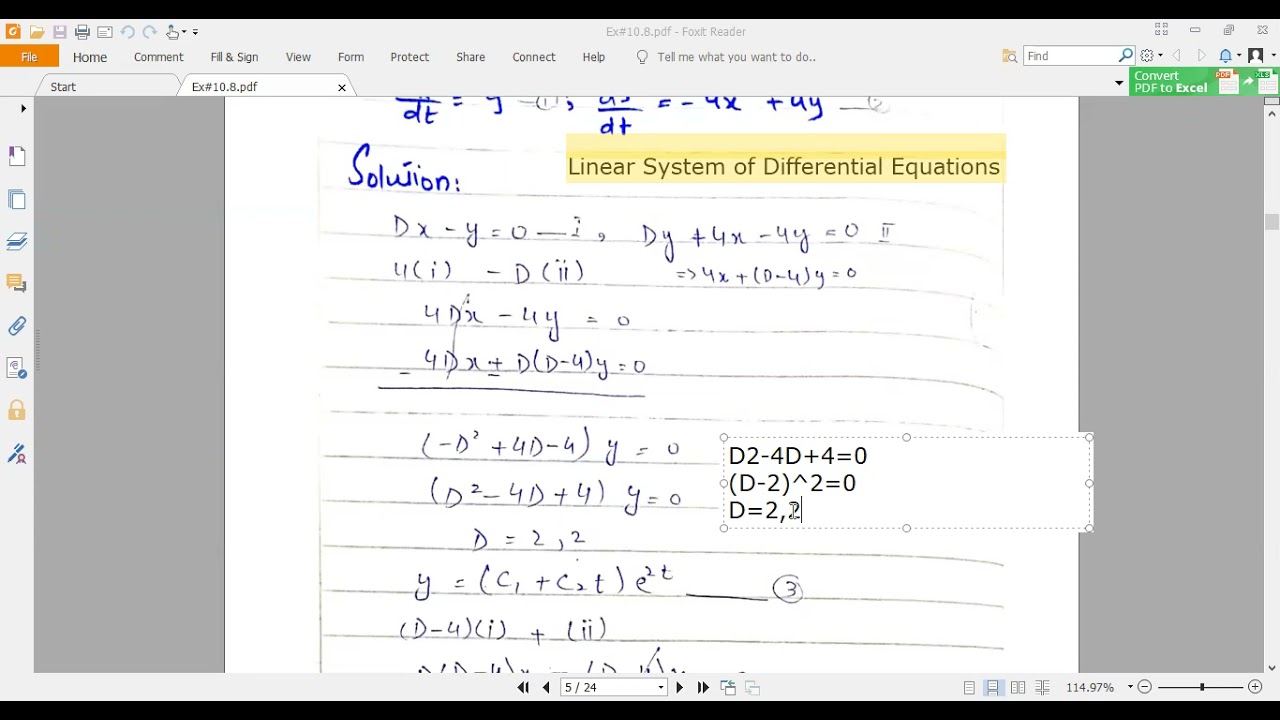 Ex#10.8.pdf - Foxit Reader
File Home Comment Fill & Sign View Form Protect Share Connect Help Tell me what you want to do.. Find
Start Ex#10.8.pdf
Convert PDF to Excel
dt = y , dt = -4x + 4y
Linear System of Differential Equations
Solution:
Dx - y = 0 — i , Dy + 4x - 4y = 0 II
4(i) - D(ii) => 4x + (D-4)y = 0
4Dx - 4y = 0
4Dx + D(D-4)y = 0
(-D² + 4D - 4) y = 0
(D² - 4D + 4) y = 0
D = 2, 2
y = (C₁ + C₂t) e²ᵗ ③
(D-4)(i) + (ii)
D2-4D+4=0
(D-2)^2=0
D=2,2
5 / 24
114.97%